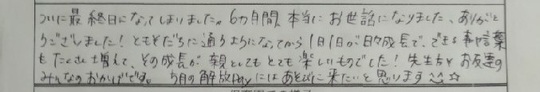 ついに最終日になってしまいました。6カ月間本当にお世話になりました、ありがと
うございました!ともそだちに通うようになってから1日1日が日々成長で、できる事や言葉
もたくさん増えて、その成長が親としてもとても楽しいものでした!先生方やお友達の
みんなのおかげです。5月の解放Dayにはあそびに来たいと思います☆